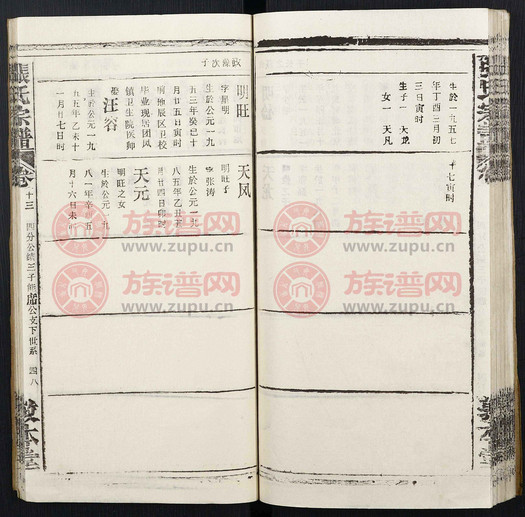 生於一九五七
年丁酉三月初
三日寅时
生子一 天龙
女一 天凡
十七寅时
次子
明旺
字昆明
生於公元一九
五三年癸巳十
月廿五日寅时
明地辰区卫校
毕业现居团风
镇卫生院医师
娶汪容
生於公元一九
五五年乙未十
一月廿七日时
天凤
明旺子
字张涛
生於公元一九
八五年乙丑
月廿四日卯时
天元
明旺之女
生於公元一九
八一年辛酉
月十六日未时
張氏宗譜
卷十三
四分公
三子
公文下世系
四八
敦本堂
族谱网
www.zupu.cn
族谱网
www.zupu.cn
族谱网
www.zupu.cn
族谱网
www.zupu.cn